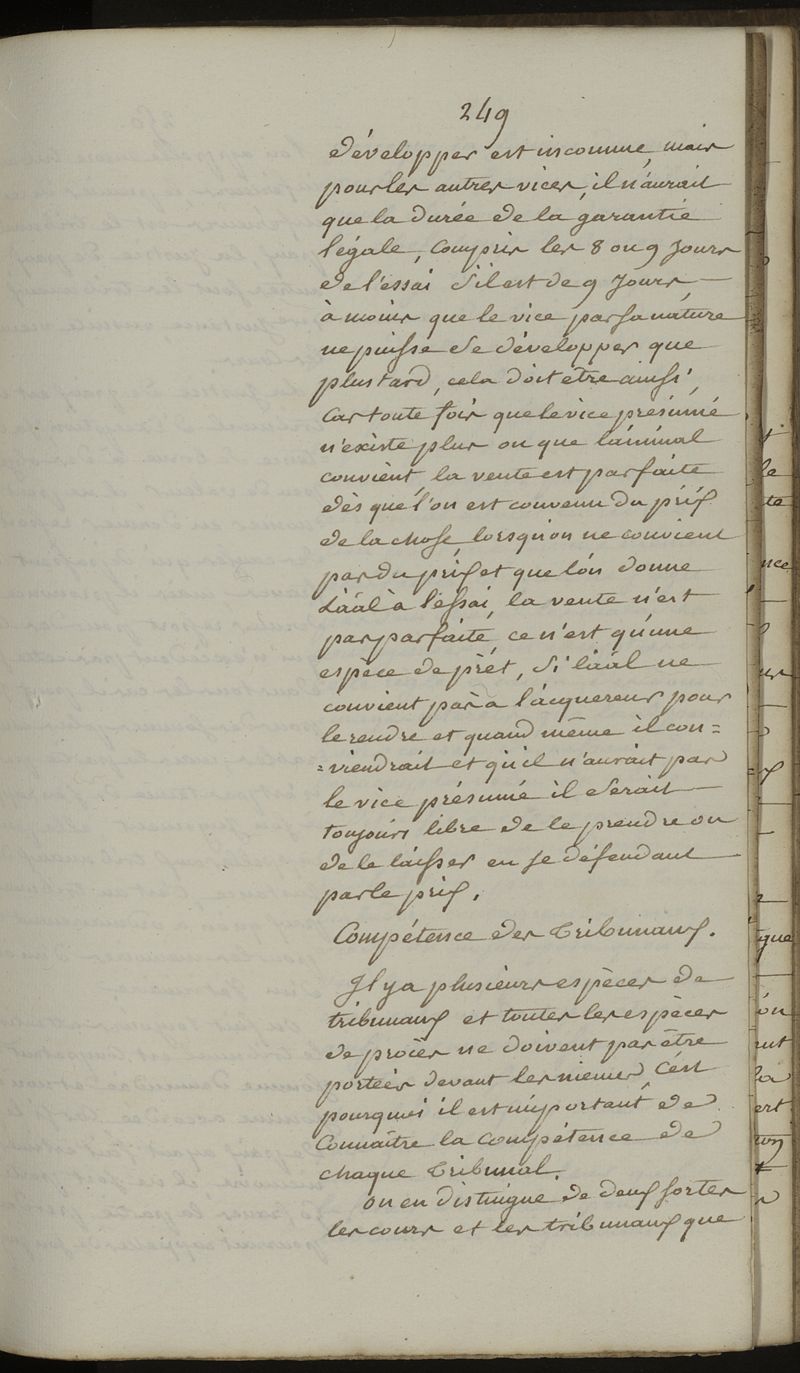 249
développer est inconnue, mais
pour les autres vices, il n'aurait
que la durée de la garantie
légale, compris les 8 ou 9 jours
de l'essai s'il est de 9 jours
à moins que le vice par sa nature
ne puisse se développer que
plus tard, cela doit être ainsi,
car toute fois que le vice présumé
n'existe plus ou que l'animal
convient, la vente est parfaite
dès que l'on est convenu du prix
de la chose, lorsqu'on ne convient
pas du prix et que l'on donne
l'aâl à l'essai, la vente n'est
pas parfaite, ce n'est qu'une
espèce de prêt, si l'aâl ne
convient pas à l'acquereur pour
le rendre et quand même il con=
=viendrait et qu'il n'aurait pas
le vice présumé il serait
toujours libre de le prendre ou
de le laisser en se défendant
par le prix.
Compétence des Tribunaux.
Il y a plusieurs espèces de
tribunaux et toutes les espèces
de procès ne doivent pas être
portées devant les mêmes, C'est
pourquoi il est important de
Connaître la compétence de
chaque Tribunal.
on en distingue de deux sortes
les cours et les tribunaux que